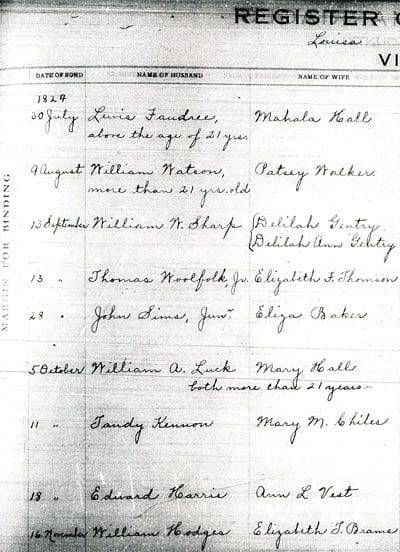 REGISTER
Louisa
VI
DATE OF BOND NAME OF HUSBAND NAME OF WIFE
1824
30 July Lewis Faudree, Mahala Hall
above the age of 21 yrs.
9 August William Watson, Patsey Walker
more than 21 yrs. old
13 September William W. Sharp {Delilah Gentry
{Delilah Ann Gentry
13 " Thomas Woolfolk, Jr. Elizabeth F. Thomson
28 " John Sims, Junr. Eliza Baker
5 October William A. Luck Mary Hall
both more than 21 years
11 " Tandy Kennon Mary M. Chiles
18 " Edward Harris Ann L Vest
16 November William Hodges Elizabeth T. Brame
MARGIN FOR BINDING